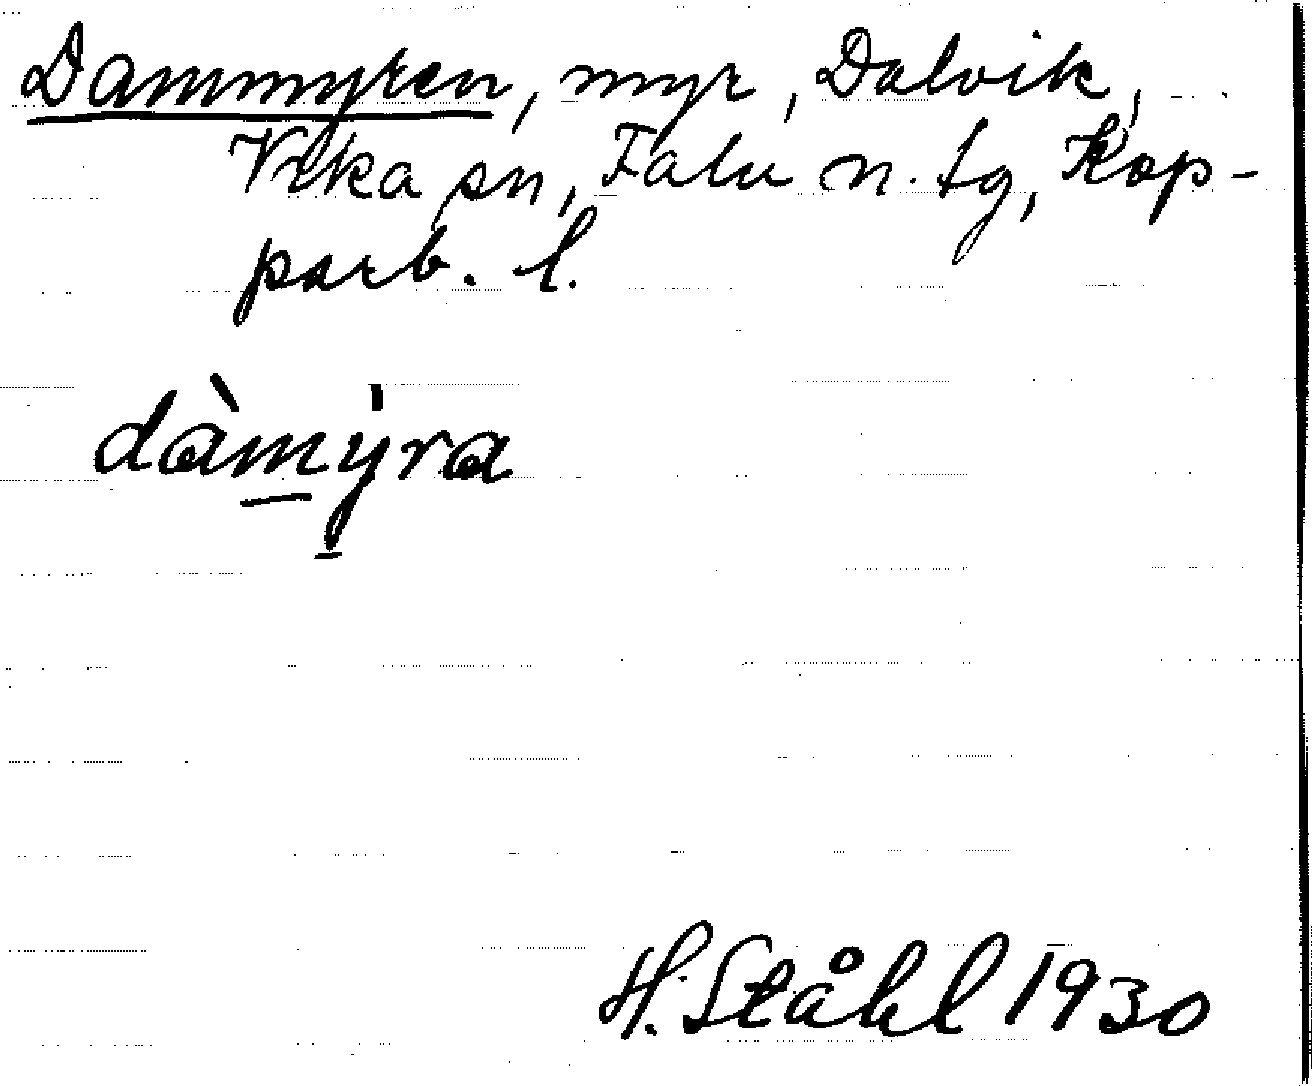 Dammyren, myr, Dalvik,
Vika sn, Falu n. tg, Kop-
parb. l.
dàm̲y̲̍ra
H. Ståhl 1930